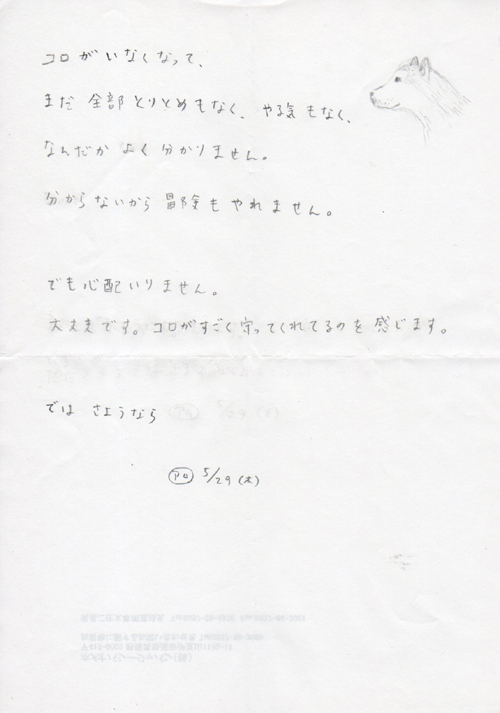 コロがいなくなって、
まだ 全部 とりとめもなく、やる気もなく、
なんだか よく 分かりません。
分からないから 冒険もやれません。
でも心配いりません。
大丈夫です。コロがすごく守ってくれてるのを感じます。
では さようなら
アロ 5/29(木)